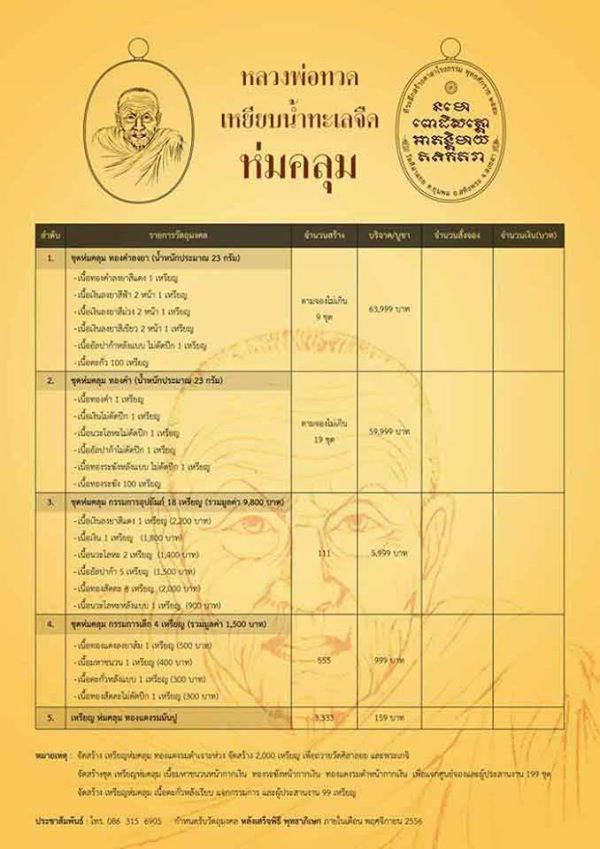 หลวงพ่อทวด
เหยียบน้ำทะเลจืด
ห่มคลุม
ลำดับ รายการวัตถุมงคล จำนวนสร้าง บริจาค/บูชา จำนวนสั่งจอง จำนวนเงิน(บาท)
1. ชุดห่มคลุม ทองคำลงยา (น้ำหนักประมาณ 23 กรัม)
- เนื้อทองคำลงยาสีแดง 1 เหรียญ
- เนื้อเงินลงยาสีฟ้า 2 หน้า 1 เหรียญ
- เนื้อเงินลงยาสีม่วง 2 หน้า 1 เหรียญ
- เนื้อเงินลงยาสีเขียว 2 หน้า 1 เหรียญ
- เนื้ออัลปาก้าหลังแบบ ไม่ตัดปีก 1 เหรียญ
- เนื้อตะกั่ว 100 เหรียญ
ตามจองไม่เกิน
9 ชุด
63,999 บาท
2. ชุดห่มคลุม ทองคำ (น้ำหนักประมาณ 23 กรัม)
- เนื้อทองคำ 1 เหรียญ
- เนื้อเงินไม่ตัดปีก 1 เหรียญ
- เนื้อนวะโลหะไม่ตัดปีก 1 เหรียญ
- เนื้ออัลปาก้าไม่ตัดปีก 1 เหรียญ
- เนื้อทองระฆังหลังแบบ ไม่ตัดปีก 1 เหรียญ
- เนื้อทองระฆัง 100 เหรียญ
ตามจองไม่เกิน
19 ชุด
59,999 บาท
3. ชุดห่มคลุม กรรมการอุปถัมภ์ 18 เหรียญ (รวมมูลค่า 9,800 บาท)
- เนื้อเงินลงยาสีแดง 1 เหรียญ (2,200 บาท)
- เนื้อเงิน 1 เหรียญ (1,800 บาท)
- เนื้อนวะโลหะ 2 เหรียญ (1,400 บาท)
- เนื้ออัลปาก้า 5 เหรียญ (1,500 บาท)
- เนื้อทองสัตตะ 8 เหรียญ (2,000 บาท)
- เนื้อนวะโลหะหลังแบบ 1 เหรียญ (900 บาท)
111
5,999 บาท
4. ชุดห่มคลุม กรรมการเล็ก 4 เหรียญ (รวมมูลค่า 1,500 บาท)
- เนื้อทองแดงลงยาส้ม 1 เหรียญ (500 บาท)
- เนื้อมหาชนวน 1 เหรียญ (400 บาท)
- เนื้อตะกั่วหลังแบบ 1 เหรียญ (300 บาท)
- เนื้อทองสัตตะไม่ตัดปีก 1 เหรียญ (300 บาท)
555
999 บาท
5. เหรียญ ห่มคลุม ทองแดงรมมันปู 3,333 159 บาท
หมายเหตุ : จัดสร้าง เหรียญห่มคลุม ทองแดงรมดำเจาะห่วง จัดสร้าง 2,000 เหรียญ เพื่อถวายวัดศิลาลอย และพระเกจิ
จัดสร้างชุด เหรียญห่มคลุม เนื้อมหาชนวนหน้ากากเงิน ทองระฆังหน้ากากเงิน ทองแดงรมดำหน้ากากเงิน เพื่อแจกศูนย์จองและผู้ประสานงาน 199 ชุด
จัดสร้าง เหรียญห่มคลุม เนื้อตะกั่วหลังเรียบ แจกกรรมการ และผู้ประสานงาน 99 เหรียญ
ประชาสัมพันธ์ : โทร. 086 315 6905 กำหนดรับวัตถุมงคล หลังเสร็จพิธี พุทธาภิเษก ภายในเดือน พฤศจิกายน 2556